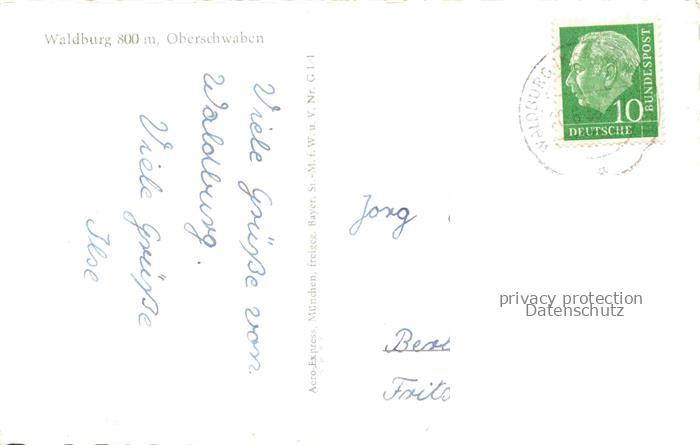 Waldburg 800 m, Oberschwaben
Viele Grüße von
Waldburg.
Viele Grüße
Ilse
Aero-Express, München, freigeg. Bayer. St.-M. f. W. u. V. Nr. G 1/1
WALDBURG
10
DEUTSCHE
BUNDESPOST
Jorg
privacy protection
Datenschutz